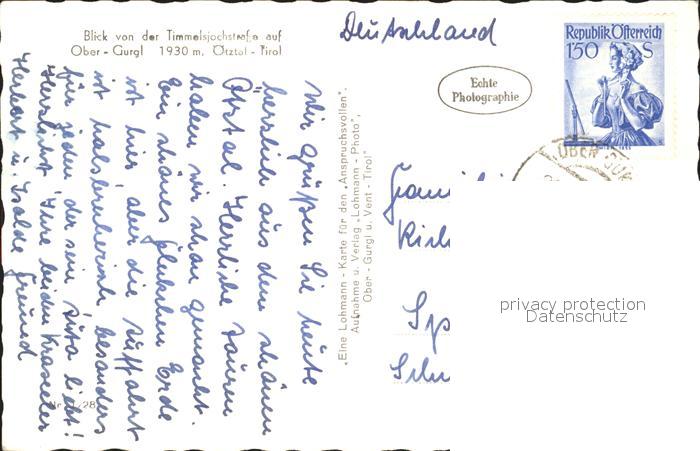 Blick von der Timmelsjochstraße auf
Ober - Gurgl 1930 m, Ötztal - Tirol
Deutschland
Echte
Photographie
Republik Österreich
1'50 S
OBER GUR
Wir grüßen Sie heute
herzlich aus dem schönen
Ötztal. Herrliche Touren
haben wir schon gemacht.
Ein schönes Fleckchen Erde
ist hier, aber die Auffahrt
ist halsbrecherisch besonders
für jeden der sein Auto liebt!
Herzlichst Ihre beiden
Herbert u. Isolde Freund
„Eine Lohmann - Karte für den „Anspruchsvollen".
Aufnahme u. Verlag „Lohmann - Photo",
Ober - Gurgl u. Vent - Tirol"
Famili
Kirch
Sp
Schu
privacy protection
Datenschutz